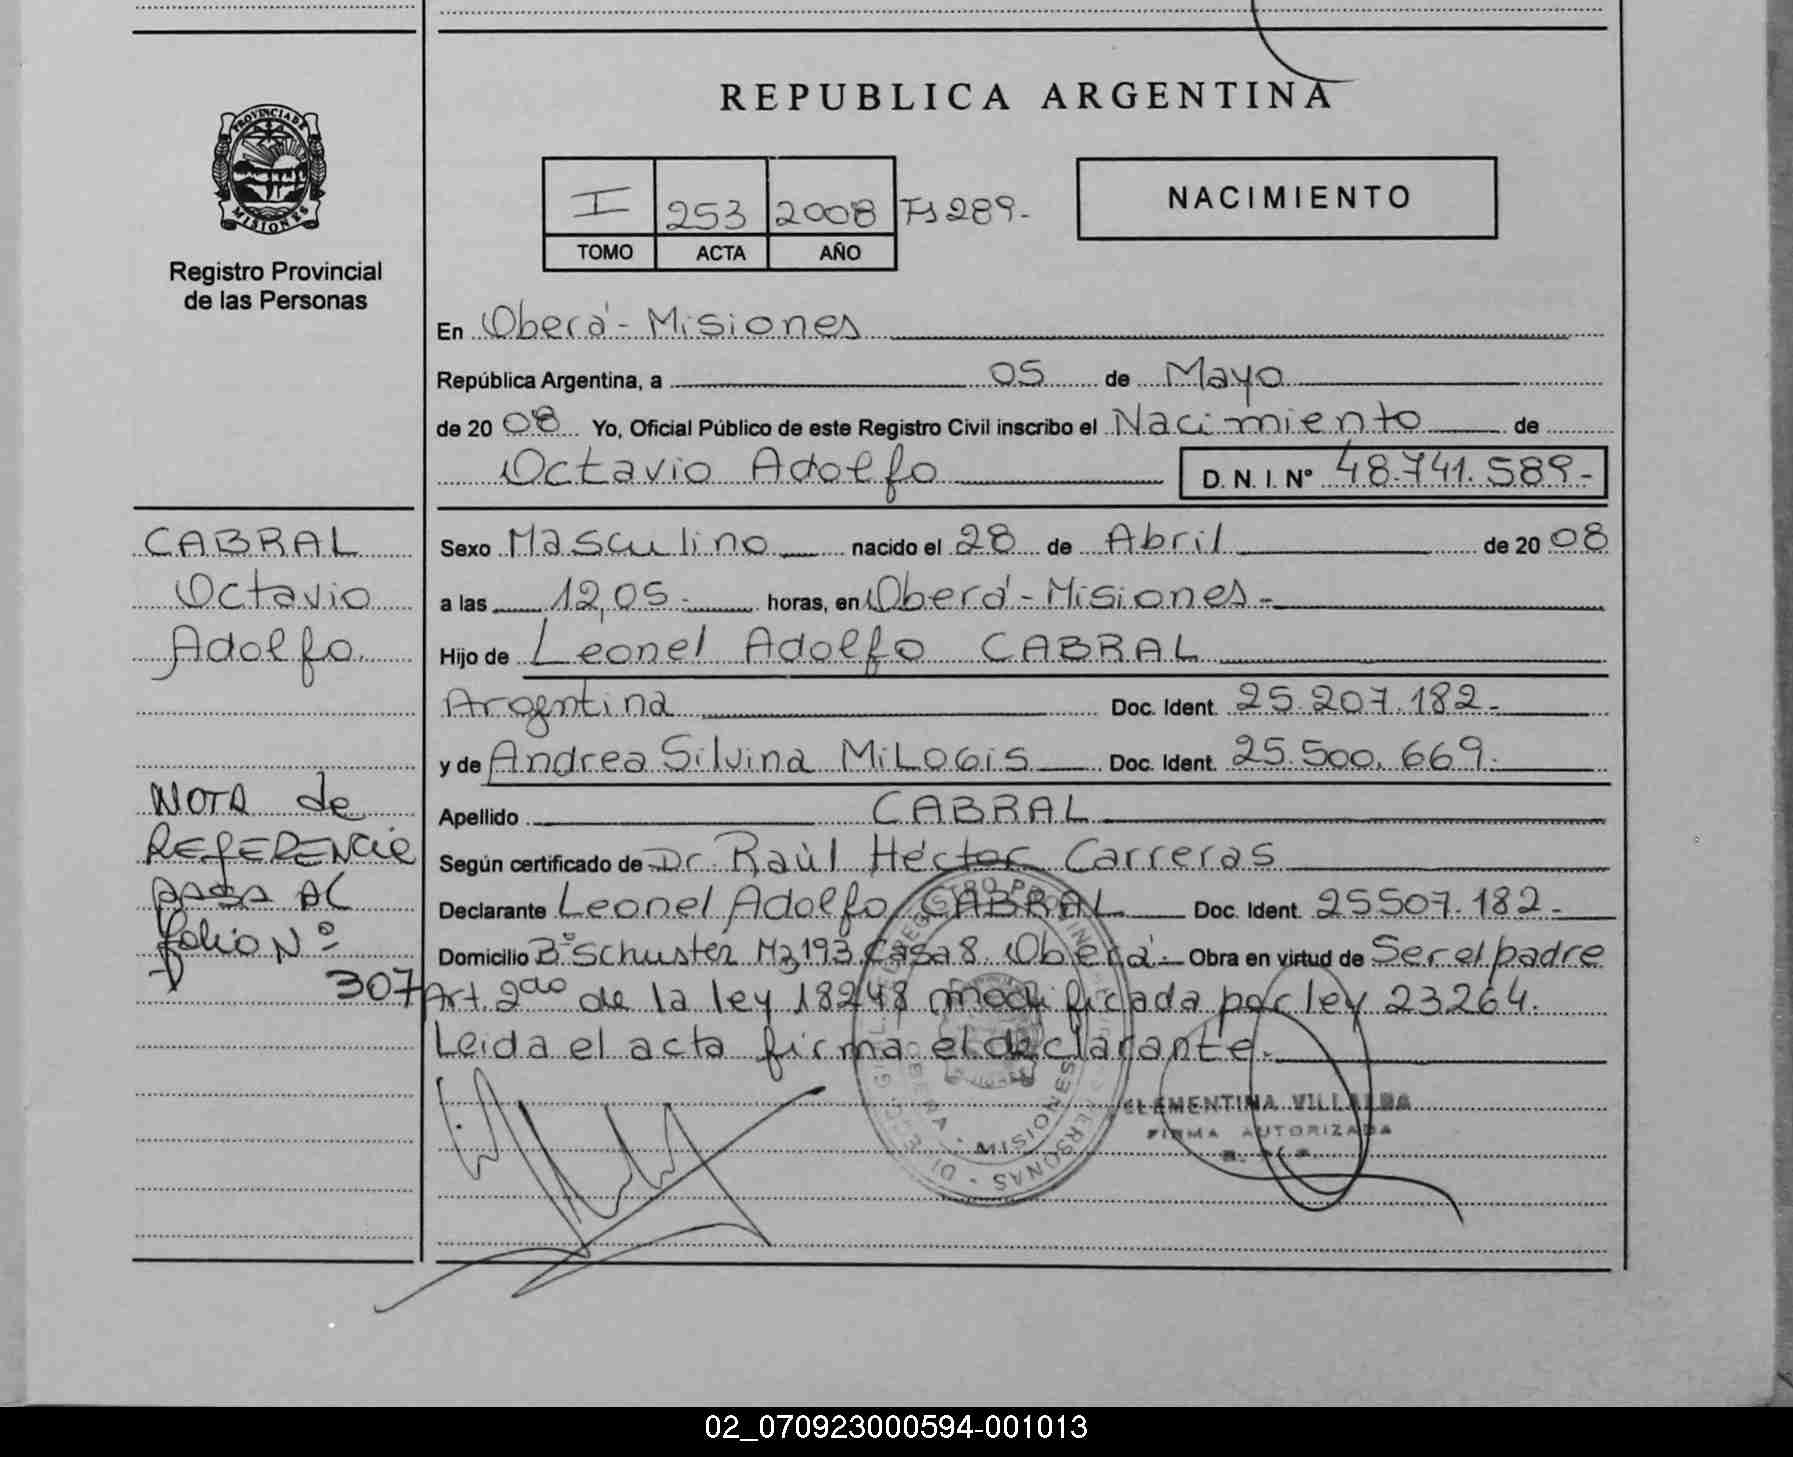 REPUBLICA ARGENTINA
PROVINCIA DE MISIONES
Registro Provincial
de las Personas
I 253 2008 Fs 289-
TOMO ACTA AÑO
NACIMIENTO
En Oberá - Misiones
República Argentina, a 05 de Mayo
de 20 08 Yo, Oficial Público de este Registro Civil inscribo el Nacimiento de
Octavio Adolfo D. N. I. Nº 48.741.589-
CABRAL
Octavio
Adolfo.
Sexo Masculino nacido el 28 de Abril de 20 08
a las 12,05- horas, en Oberá - Misiones-
Hijo de Leonel Adolfo CABRAL
Argentina Doc. Ident. 25.207.182-
y de Andrea Silvina MiLOGiS Doc. Ident. 25.500.669-
Apellido CABRAL
Según certificado de Dr. Raùl Héctor Carreras
Declarante Leonel Adolfo CABRAL Doc. Ident. 25507.182-
Domicilio Bº Schuster Mz 193 Casa 8. Oberá- Obra en virtud de Ser el padre
Art. 2do de la ley 18248 modificada por ley 23264.
Leida el acta firma el declarante.-
NOTA de
REFERENCIA
pasa AL
folio Nº
307
REGISTRO PROVINCIAL DE LAS PERSONAS
OBERA - MISIONES
CLEMENTINA VILLALBA
FIRMA AUTORIZADA
02_070923000594-001013